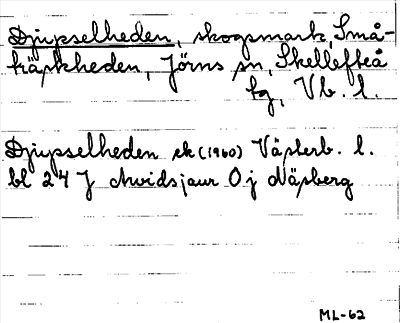 Djupselheden, skogsmark, Små-
käpkheden, Jörns sn, Skellefteå
tg, Vb. l.
Djupselheden ek (1960) Västerb. l.
bl 24 J Arvidsjaur Oj Näsberg
ML-62